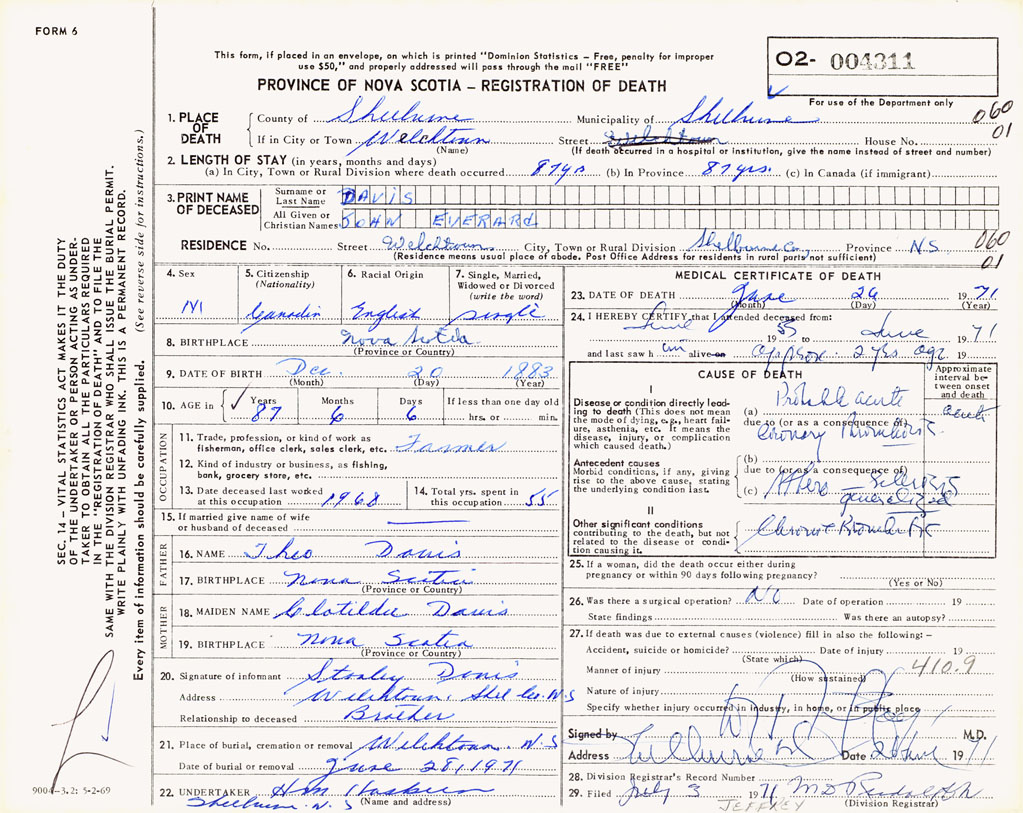 FORM 6
This form, if placed in an envelope, on which is printed "Dominion Statistics – Free, penalty for improper
use $50," and properly addressed will pass through the mail "FREE"
O2- 004311
PROVINCE OF NOVA SCOTIA – REGISTRATION OF DEATH
For use of the Department only
1. PLACE OF DEATH County of Shelburne Municipality of Shelburne 060
If in City or Town Welchtown Street House No. 01
(Name) (If death occurred in a hospital or institution, give the name instead of street and number)
2. LENGTH OF STAY (in years, months and days)
(a) In City, Town or Rural Division where death occurred 87 yrs (b) In Province 87 yrs. (c) In Canada (if immigrant)
3. PRINT NAME OF DECEASED Surname or Last Name DAVIS
All Given or Christian Names JOHN EVERARD
RESIDENCE No. Street Welchtown City, Town or Rural Division Shelburne Co. Province N.S 060
(Residence means usual place of abode. Post Office Address for residents in rural parts not sufficient) 01
4. Sex M
5. Citizenship (Nationality) Canadin
6. Racial Origin English
7. Single, Married, Widowed or Divorced (write the word) single
8. BIRTHPLACE Nova Scotia
(Province or Country)
9. DATE OF BIRTH Dec. 20 1883
(Month) (Day) (Year)
10. AGE in Years Months Days If less than one day old
87 6 6 hrs. or min.
OCCUPATION
11. Trade, profession, or kind of work as
fisherman, office clerk, sales clerk, etc. Farmer
12. Kind of industry or business, as fishing,
bank, grocery store, etc.
13. Date deceased last worked at this occupation 1968
14. Total yrs. spent in this occupation 55
15. If married give name of wife
or husband of deceased
FATHER
16. NAME Theo Davis
17. BIRTHPLACE Nova Scotia
(Province or Country)
MOTHER
18. MAIDEN NAME Clotildie Davis
19. BIRTHPLACE Nova Scotia
(Province or Country)
20. Signature of informant Stanley Davis
Address Welchtown, Shel Co. N.S
Relationship to deceased Brother
21. Place of burial, cremation or removal Welchtown N.S
Date of burial or removal June 28, 1971
22. UNDERTAKER H M Huskins
Shelburne N.S (Name and address)
MEDICAL CERTIFICATE OF DEATH
23. DATE OF DEATH June 26 1971
(Month) (Day) (Year)
24. I HEREBY CERTIFY that I attended deceased from:
June 1955 to June 1971
and last saw h im alive on approx. 2 yrs ago 19
CAUSE OF DEATH
Approximate interval between onset and death
I
Disease or condition directly leading
to death (This does not mean
the mode of dying, e.g., heart failure,
asthenia, etc. It means the
disease, injury, or complication
which caused death.)
(a) Probable acute acute
due to (or as a consequence of)
Coronary Thrombosis
Antecedent causes
Morbid conditions, if any, giving
rise to the above cause, stating
the underlying condition last.
(b)
due to (or as a consequence of)
(c) Athero-Sclerosis
generalized
II
Other significant conditions
contributing to the death, but not
related to the disease or condition
causing it.
Chronic Bronchitis
25. If a woman, did the death occur either during
pregnancy or within 90 days following pregnancy?
(Yes or No)
26. Was there a surgical operation? No Date of operation 19
State findings Was there an autopsy?
27. If death was due to external causes (violence) fill in also the following: –
Accident, suicide or homicide? Date of injury 19
(State which)
Manner of injury 410.9
(How sustained)
Nature of injury
Specify whether injury occurred in industry, in home, or in public place
Signed by M.D.
Address Shelburne Date 28 June 1971
28. Division Registrar's Record Number
29. Filed July 3 1971 M D Rudolph
JEFFREY (Division Registrar)
SEC. 14 – VITAL STATISTICS ACT MAKES IT THE DUTY
OF THE UNDERTAKER OR PERSON ACTING AS UNDERTAKER
TO OBTAIN ALL THE PARTICULARS REQUIRED
IN THE "REGISTRATION OF DEATH" AND TO FILE THE
SAME WITH THE DIVISION REGISTRAR WHO SHALL ISSUE THE BURIAL PERMIT.
WRITE PLAINLY WITH UNFADING INK. THIS IS A PERMANENT RECORD.
Every item of information should be carefully supplied. (See reverse side for instructions.)
9004-3.2: 5-2-69